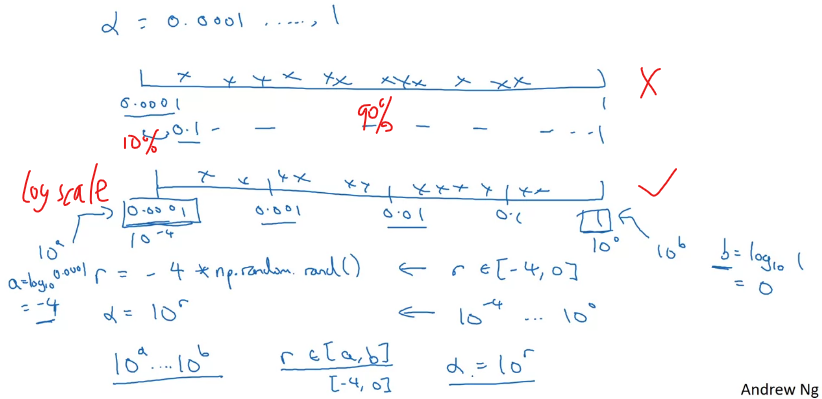 α = 0.0001 ....., 1
X
0.0001 1
10% 0.1 90% 1
log scale
0.0001 0.001 0.01 0.1 1
10^-4 10^0
10^a 10^b
a=log10 0.0001
= -4
r = -4 * np.random.rand() ← r ∈ [-4, 0]
b = log10 1
= 0
α = 10^r ← 10^-4 ... 10^0
10^a ... 10^b r ∈ [a, b] α = 10^r
[-4, 0]
Andrew Ng